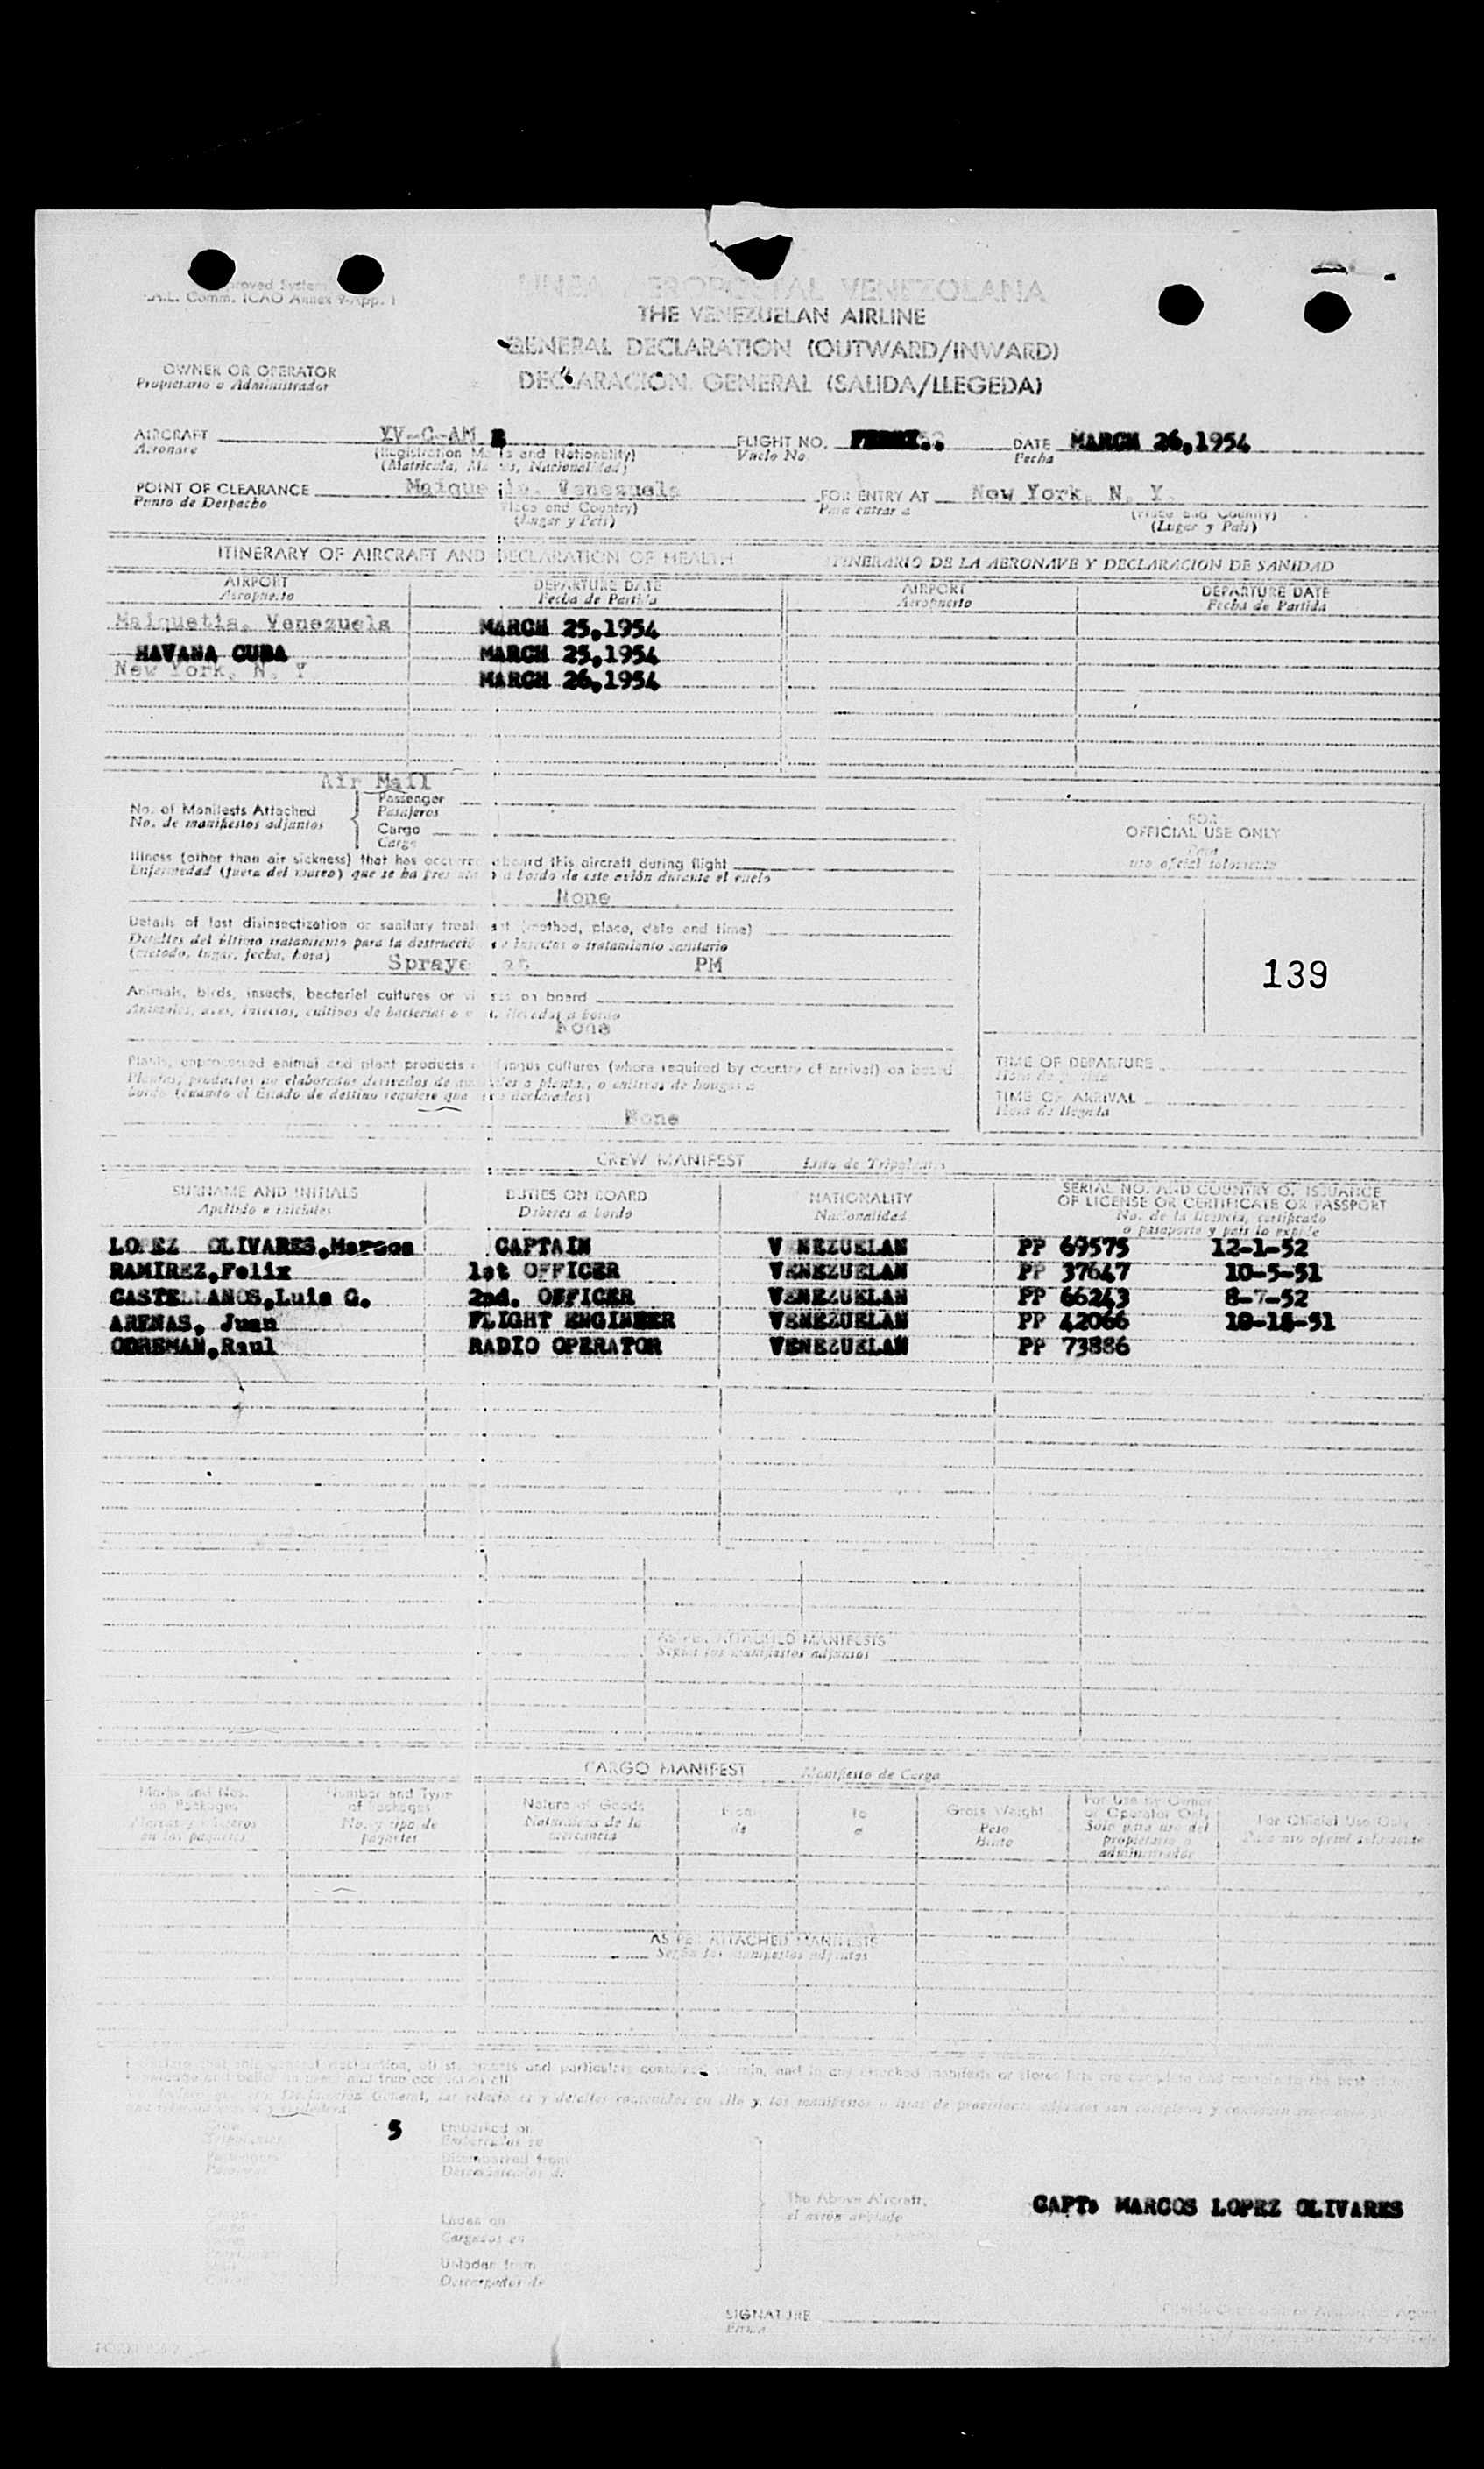 roved System
A.L. Comm. ICAO Annex 9-App. 1
LINEA AEROPOSTAL VENEZOLANA
THE VENEZUELAN AIRLINE
GENERAL DECLARATION (OUTWARD/INWARD)
DECLARACION GENERAL (SALIDA/LLEGEDA)
OWNER OR OPERATOR
Propietario o Administrador
AIRCRAFT YV-C-AM FLIGHT NO. FERRY.. DATE MARCH 26,1954
Aeronave (Registration Marks and Nationality) Vuelo No. Fecha
(Matricula, Marcas, Nacionalidad)
POINT OF CLEARANCE Maique ia, Venezuela FOR ENTRY AT New York, N. Y.
Punto de Despacho (Place and Country) Para entrar a (Place and Country)
(Lugar y Pais) (Lugar y Pais)
ITINERARY OF AIRCRAFT AND DECLARATION OF HEALTH ITINERARIO DE LA AERONAVE Y DECLARACION DE SANIDAD
AIRPORT DEPARTURE DATE AIRPORT DEPARTURE DATE
Aeropuerto Fecha de Partida Aeropuerto Fecha de Partida
Maiquetia, Venezuela MARCH 25,1954
HAVANA CUBA MARCH 25,1954
New York, N. Y. MARCH 26,1954
Air Mail
No. of Manifests Attached Passenger
No. de manifiestos adjuntos Pasajeros
Cargo
Carga
FOR
OFFICIAL USE ONLY
Para
uso oficial solamente
Illness (other than air sickness) that has occurred aboard this aircraft during flight
Enfermedad (fuera del mareo) que se ha presentado a bordo de este avión durante el vuelo
None
Details of last disinsectization or sanitary treatment (method, place, date and time)
Detalles del último tratamiento para la destrucción de insectos o tratamiento sanitario
(método, lugar, fecha, hora) Spraye at PM
139
Animals, birds, insects, bacterial cultures or viruses on board
Animales, aves, insectos, cultivos de bacterias o llevados a bordo
None
Plants, unprocessed animal and plant products or fungus cultures (where required by country of arrival) on board
Plantas, productos no elaborados derivados de animales o plantas, o cultivos de hongos a
bordo (cuando el Estado de destino requiere que sean declarados)
None
TIME OF DEPARTURE
Hora de partida
TIME OF ARRIVAL
Hora de llegada
CREW MANIFEST Lista de Tripulantes
SURNAME AND INITIALS DUTIES ON BOARD NATIONALITY SERIAL NO. AND COUNTRY OF ISSUANCE
Apellido e iniciales Deberes a bordo Nacionalidad OF LICENSE OR CERTIFICATE OR PASSPORT
No. de la licencia, certificado
o pasaporte y pais lo expide
LOPEZ OLIVARES,Marcos CAPTAIN V NEZUELAN PP 69575 12-1-52
RAMIREZ,Felix 1st OFFICER VENEZUELAN PP 37647 10-5-51
CASTELLANOS,Luis G. 2nd. OFFICER VENEZUELAN PP 66243 8-7-52
ARENAS, Juan FLIGHT ENGINEER VENEZUELAN PP 42066 10-18-51
ODREMAN,Raul RADIO OPERATOR VENEZUELAN PP 73886
AS PER ATTACHED MANIFESTS
Según los manifiestos adjuntos
CARGO MANIFEST Manifiesto de Carga
Marks and Nos. Number and Type Nature of Goods From To Gross Weight For Use by Owner For Official Use Only
on Packages of Packages Naturaleza de la de a Peso or Operator Only Para uso oficial solamente
Marcas y números No. y tipo de mercancia Bruto Solo para uso del
en los paquetes paquetes propietario o
administrador
AS PER ATTACHED MANIFESTS
Según los manifiestos adjuntos
5 Embarked on
Embarcados en
Disembarked from
Desembarcados de
The Above Aircraft,
el avión aludido
CAPT. MARCOS LOPEZ OLIVARES
Laden on
Cargados en
Unladen from
Descargados de
SIGNATURE
Firma